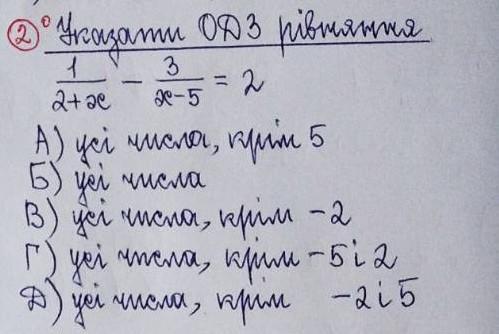 2° Указати ОДЗ рівняння
1/(2+x) − 3/(x−5) = 2
А) усі числа, крім 5
Б) усі числа
В) усі числа, крім −2
Г) усі числа, крім −5 і 2
Д) усі числа, крім −2 і 5